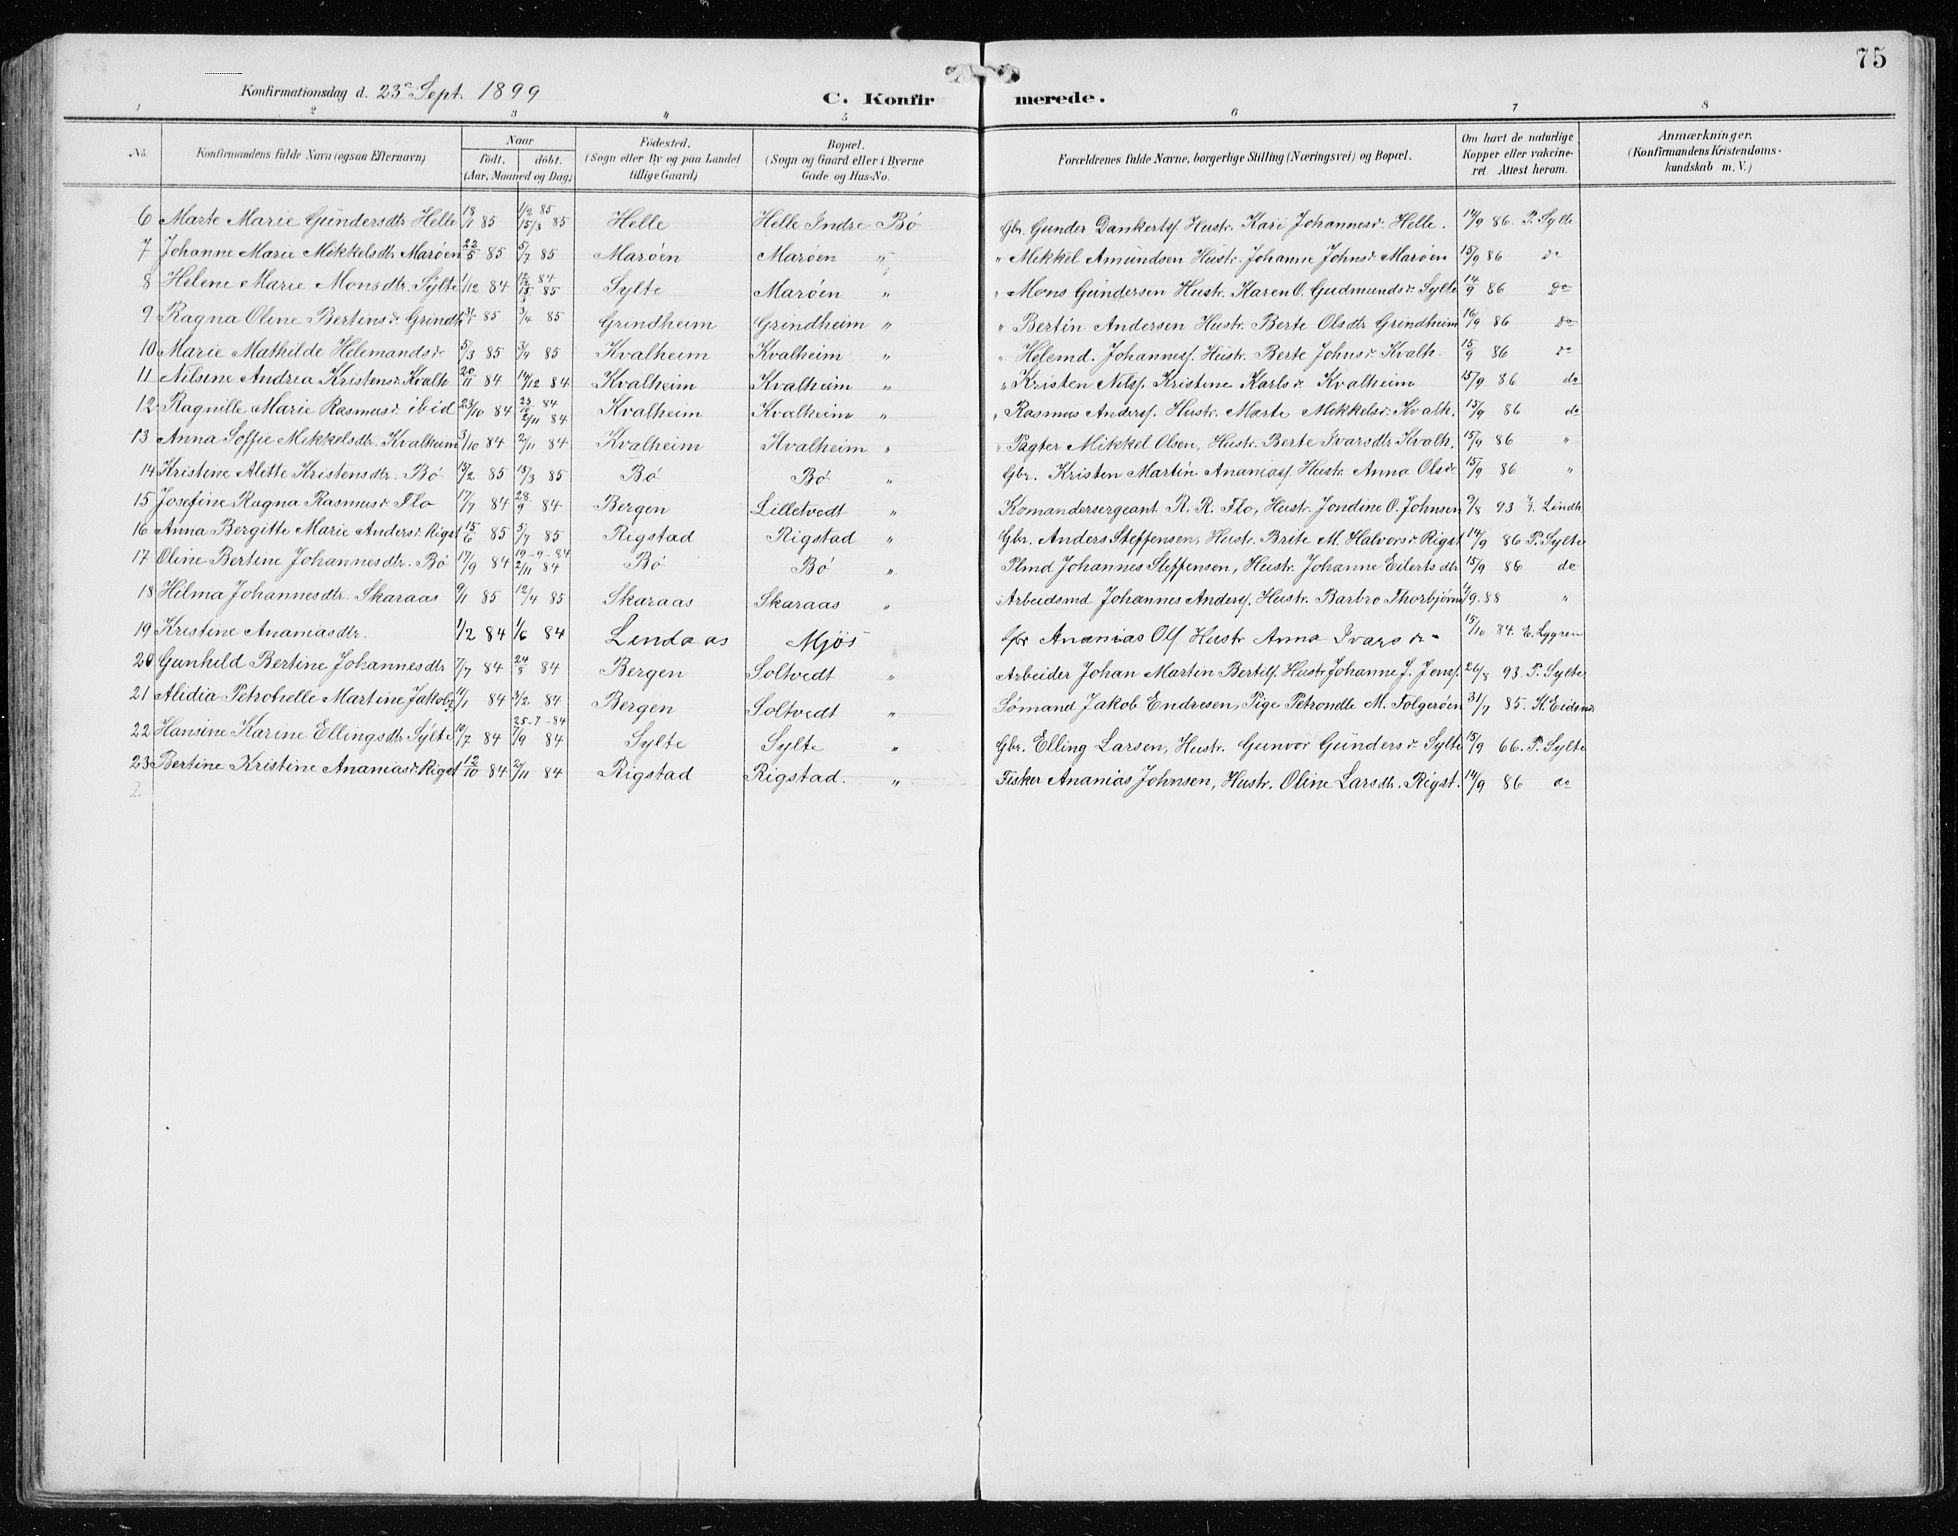 75
Konfirmationsdag d. 23de Sept. 1899
C. Konfirmerede.
1 2 3 4 5 6 7 8
No. Konfirmandens fulde Navn (ogsaa Efternavn) Naar födt. döbt. (Aar, Maaned og Dag) Födested. (Sogn eller By og paa Landet tillige Gaard) Bopæl. (Sogn og Gaard eller i Byerne Gade og Hus-No. Forældrenes fulde Navne, borgerlige Stilling (Næringsvei) og Bopæl. Om havt de naturlige Kopper eller vakcineret Attest herom. Anmærkninger. (Konfirmandens Kristendomskundskab m. V.)
6 Marte Marie Gundersdtr Helle 18/1 85 1/2 85 15/3 85 Helle Helle Indre Bö Gbr. Gunder Dankerts. Hustr. Kari Johannesdr. Helle. 14/9 86. P. Sylte
7 Johanne Marie Mikkelsdtr Maröen 22/5 85 5/7 85 Maröen Maröen " " Mikkel Amundsen Hustr. Johanne Johnsdr Maröen 15/9 86 do
8 Helene Marie Monsdtr. Sylte 1/12 84 84 85 Sylte Maröen " " Mons Gundersen Hustr. Karen O. Gudmundsdr Sylte 14/9 86 Do
9 Ragna Oline Bertinsdr. Grindh 3/1 85 3/4 85 Grindheim Grindheim " " Bertin Andersen Hustr. Berte Olsdtr Grindheim 16/9 86 Do
10 Marie Mathilde Helemandsdr 5/3 85 3/4 85 Kvalheim Kvalheim " " Helemd. Johanness. Hustr. Berte Johnsdr Kvalh. 15/9 86 do
11 Nilsine Andrea Kristensdr. Kvalh 20/11 84 14/12 84 Kvalheim Kvalheim " " Kristen Nils. Kristine Karlsdr Kvalheim 15/9 86 do
12 Ragnille Marie Rasmusdr ibid 23/10 84 84 2/11 84 Kvalheim Kvalheim " " Rasmus Anders. Hustr. Marte Mikkelsdr Kvalh. 15/9 86 do
13 Anna Soffie Mikkelsdtr. Kvalheim 3/10 84 2/11 84 Kvalheim Kvalheim " " Pagter Mikkel Olsen, Hustr. Berte Ivarsdtr Kvalh. 15/9 86 "
14 Kristine Alette Kristensdtr. Bö 14/2 85 15/3 85 Bö Bö " Gbr. Kristen Martin Ananias. Hustr. Anna Olsdr 15/9 86 "
15 Josefine Ragna Rasmusdr Flo 17/7 84 28/9 84 Bergen Lilletvedt " Komandersergeant R. R. Flo, Hustr. Jondine O. Johnsen 9/8 93 Lindh
16 Anna Bergitte Marie Andersdr Rigst 15/6 85 5/7 85 Rigstad Rigstad " Gbr. Anders Steffensen, Hustr. Brite M. Halvorsdr Rigst 14/9 86 P. Sylte
17 Oline Bertine Johannesdtr. Bö 17/9 84 19-9-84 2/11 84 Bö Bö " Plmd Johannes Steffensen, Hustr. Johanne Eilertsdtr 15/9 86 do
18 Hilma Johannesdtr. Skaraas 9/1 85 12/4 85 Skaraas Skaraas " Arbeidsmd Johannes Anders. Hustr. Barbro Thorbjörns 1/9. 88 "
19 Kristine Ananiasdtr. 1/2 84 1/6 84 Lindaas Mjös Gbr Ananias Ols. Hustr Anna Ivarsdr 15/10 84. E. Lygren
20 Gunhild Bertine Johannesdtr 7/7 84 24/8 84 Bergen Soltvedt " Arbeider Johan Martin Bertils. Hustr Johanne J. Jens. 26/8 93. P. Sylte
21 Alidia Petronelle Martine Jakobs 11/1 84 3/2 84 Bergen Soltvedt " Sömand Jakob Endresen, Pige Petronelle M. Folgeröen 31/7 85. H. Eidsn.
22 Hansine Karine Ellingsdtr Sylte 10/7 84 25-7-84 7/9 84 Sylte Sylte " Gbr. Elling Larsen, Hustr. Gunvor Gundersdr Sylte 15/9 66. P. Sylte
23 Bertine Kristine Ananiasdr Rigst 12/10 84 2/11 84 Rigstad Rigstad. " Fisker Ananias Johnsen, Hustr. Oline Larsdtr. Rigst. 14/9 86 do